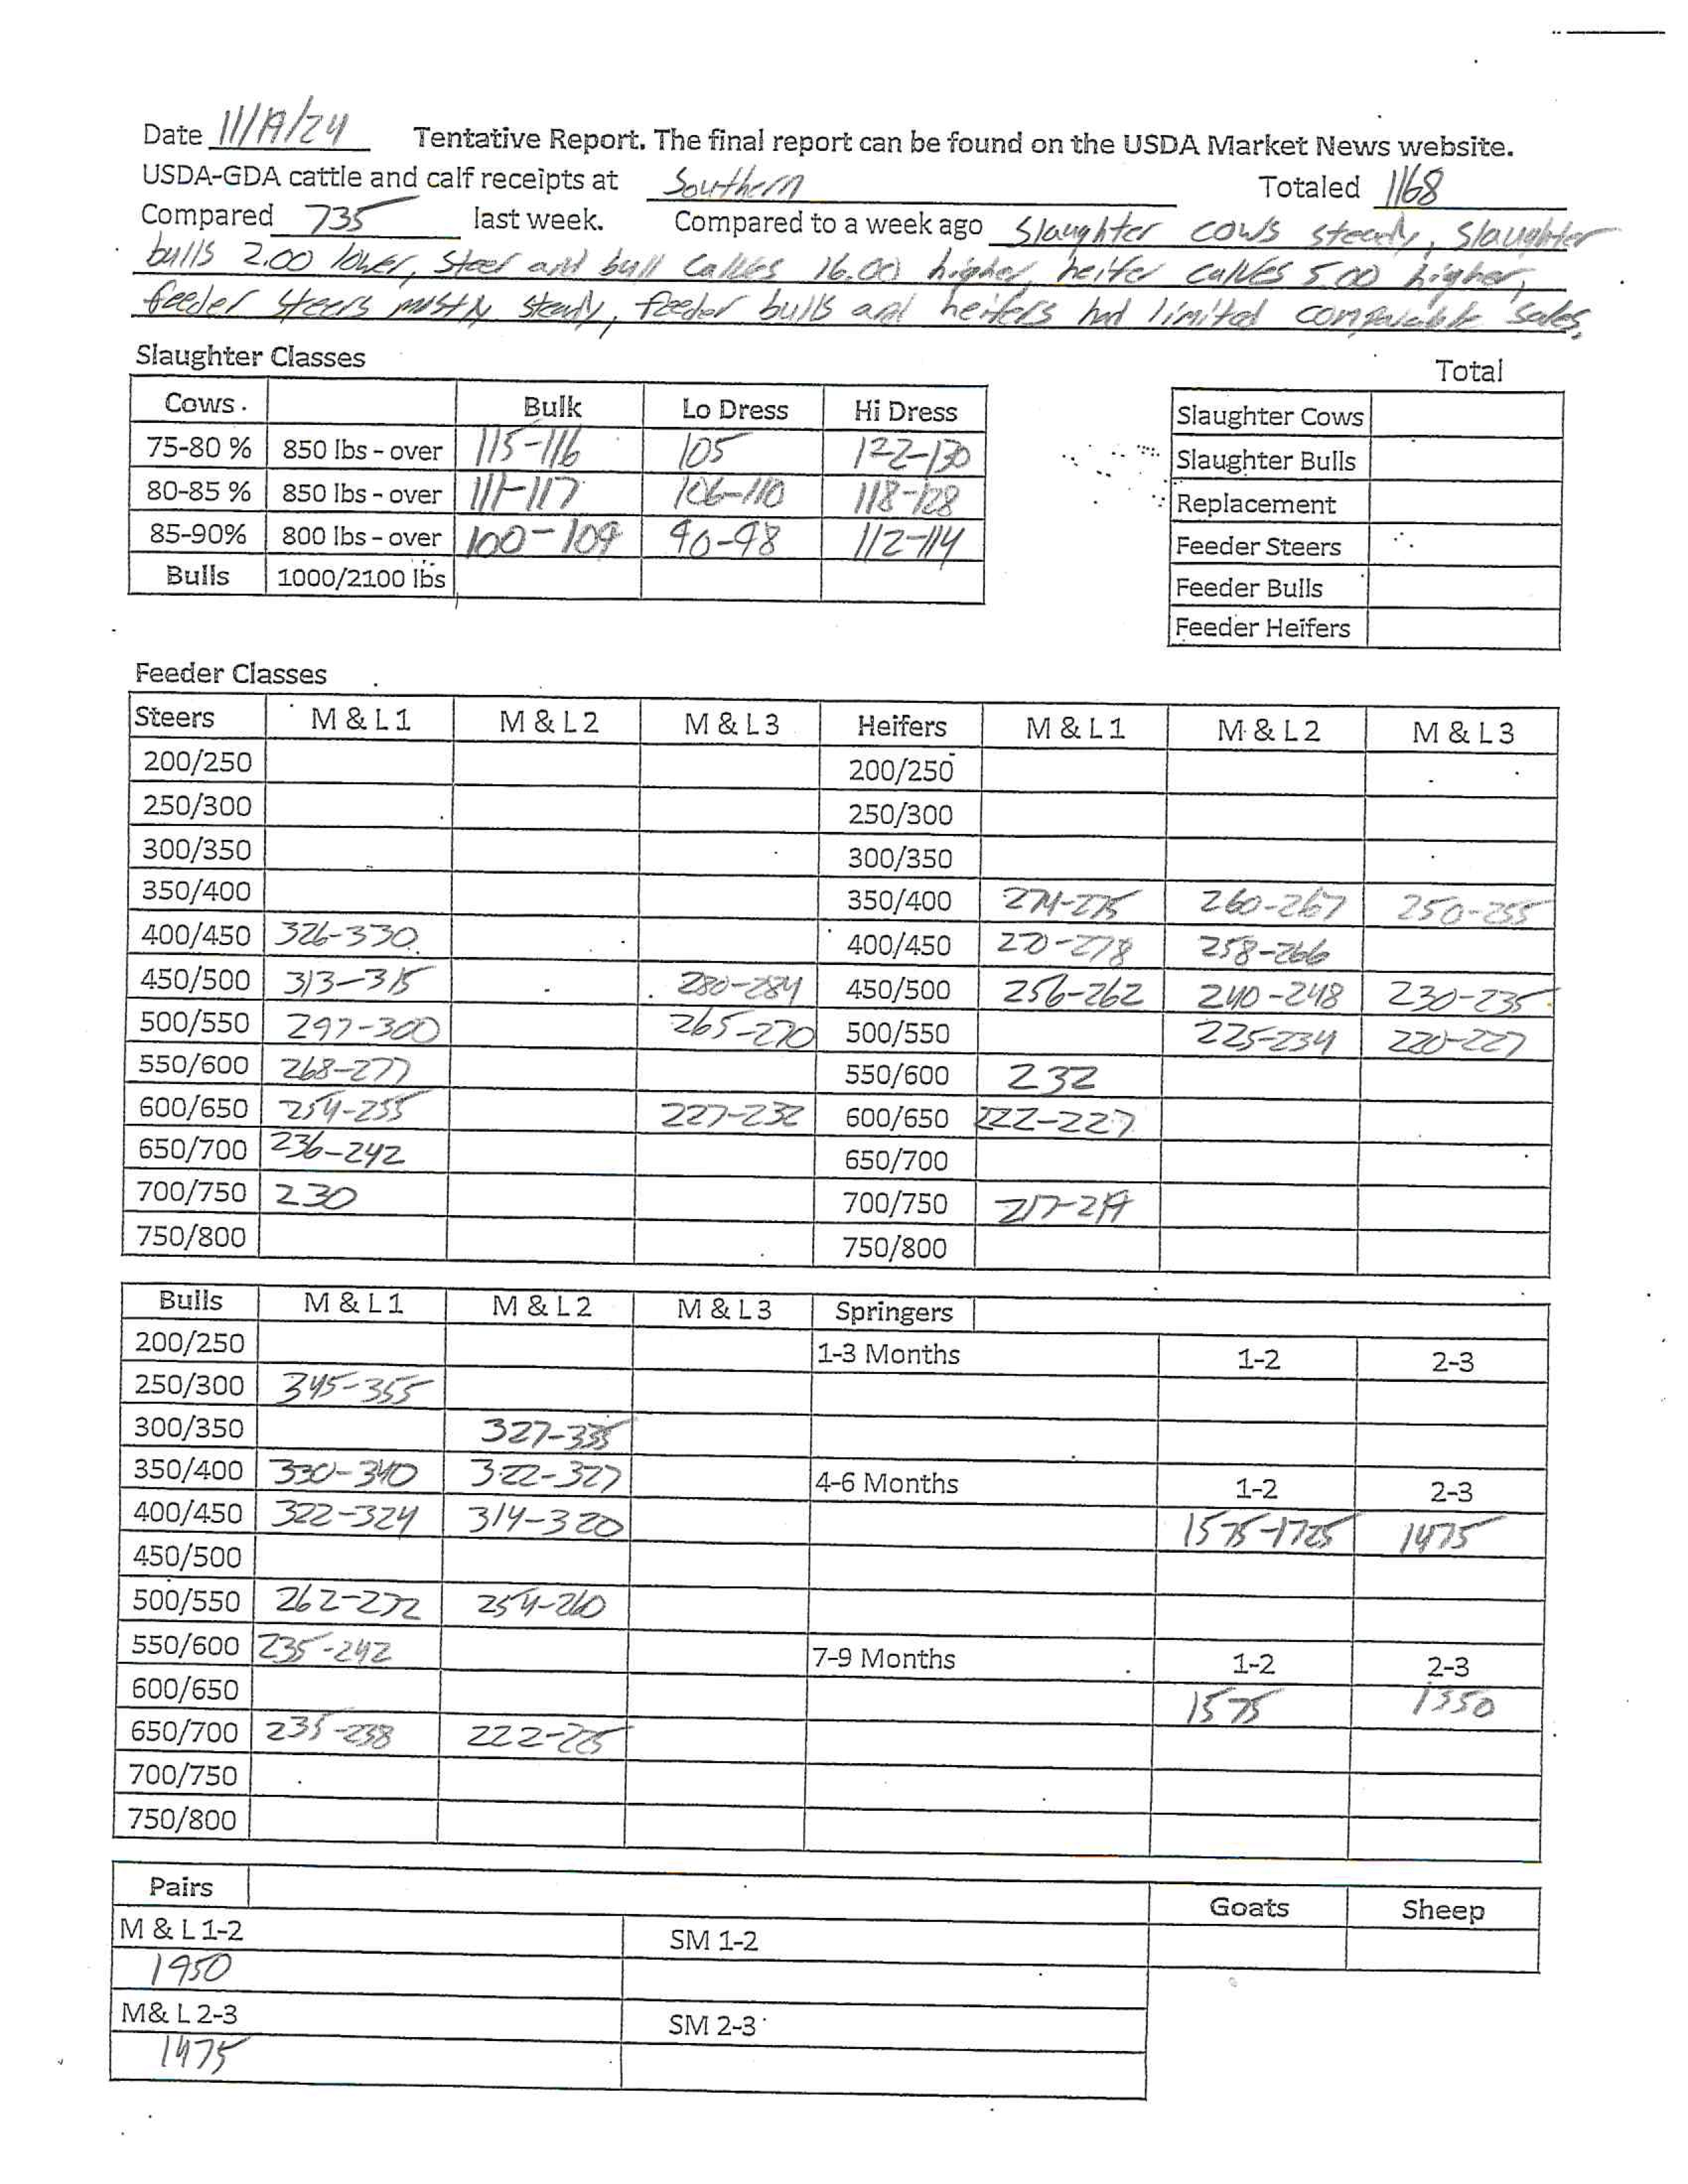 Date 11/19/24 Tentative Report. The final report can be found on the USDA Market News website.
USDA-GDA cattle and calf receipts at Southern Totaled 1168
Compared 735 last week. Compared to a week ago Slaughter cows steady, slaughter
bulls 2.00 lower, steer and bull calves 16.00 higher, heifer calves 5.00 higher,
feeder steers mostly steady, feeder bulls and heifers had limited comparable sales.
Slaughter Classes
Total
Cows. Bulk Lo Dress Hi Dress
75-80 % 850 lbs - over 115-116 105 122-130
80-85 % 850 lbs - over 111-117 106-110 118-128
85-90% 800 lbs - over 100-109 90-98 112-114
Bulls 1000/2100 lbs
Slaughter Cows
Slaughter Bulls
Replacement
Feeder Steers
Feeder Bulls
Feeder Heifers
Feeder Classes
Steers M & L 1 M & L 2 M & L 3 Heifers M & L 1 M & L 2 M & L 3
200/250 200/250
250/300 250/300
300/350 300/350
350/400 350/400 274-275 260-267 250-255
400/450 326-330 400/450 270-278 258-266
450/500 313-315 280-284 450/500 256-262 240-248 230-235
500/550 297-300 265-270 500/550 225-234 220-227
550/600 268-277 550/600 232
600/650 254-255 227-232 600/650 222-227
650/700 236-242 650/700
700/750 230 700/750 217-219
750/800 750/800
Bulls M & L 1 M & L 2 M & L 3 Springers
200/250 1-3 Months 1-2 2-3
250/300 345-355
300/350 327-335
350/400 330-340 322-327 4-6 Months 1-2 2-3
400/450 322-324 314-320 1575-1725 1475
450/500
500/550 262-272 254-260
550/600 235-242 7-9 Months 1-2 2-3
600/650 1575 1350
650/700 235-238 222-225
700/750
750/800
Pairs Goats Sheep
M & L 1-2 SM 1-2
1950
M& L 2-3 SM 2-3
1475